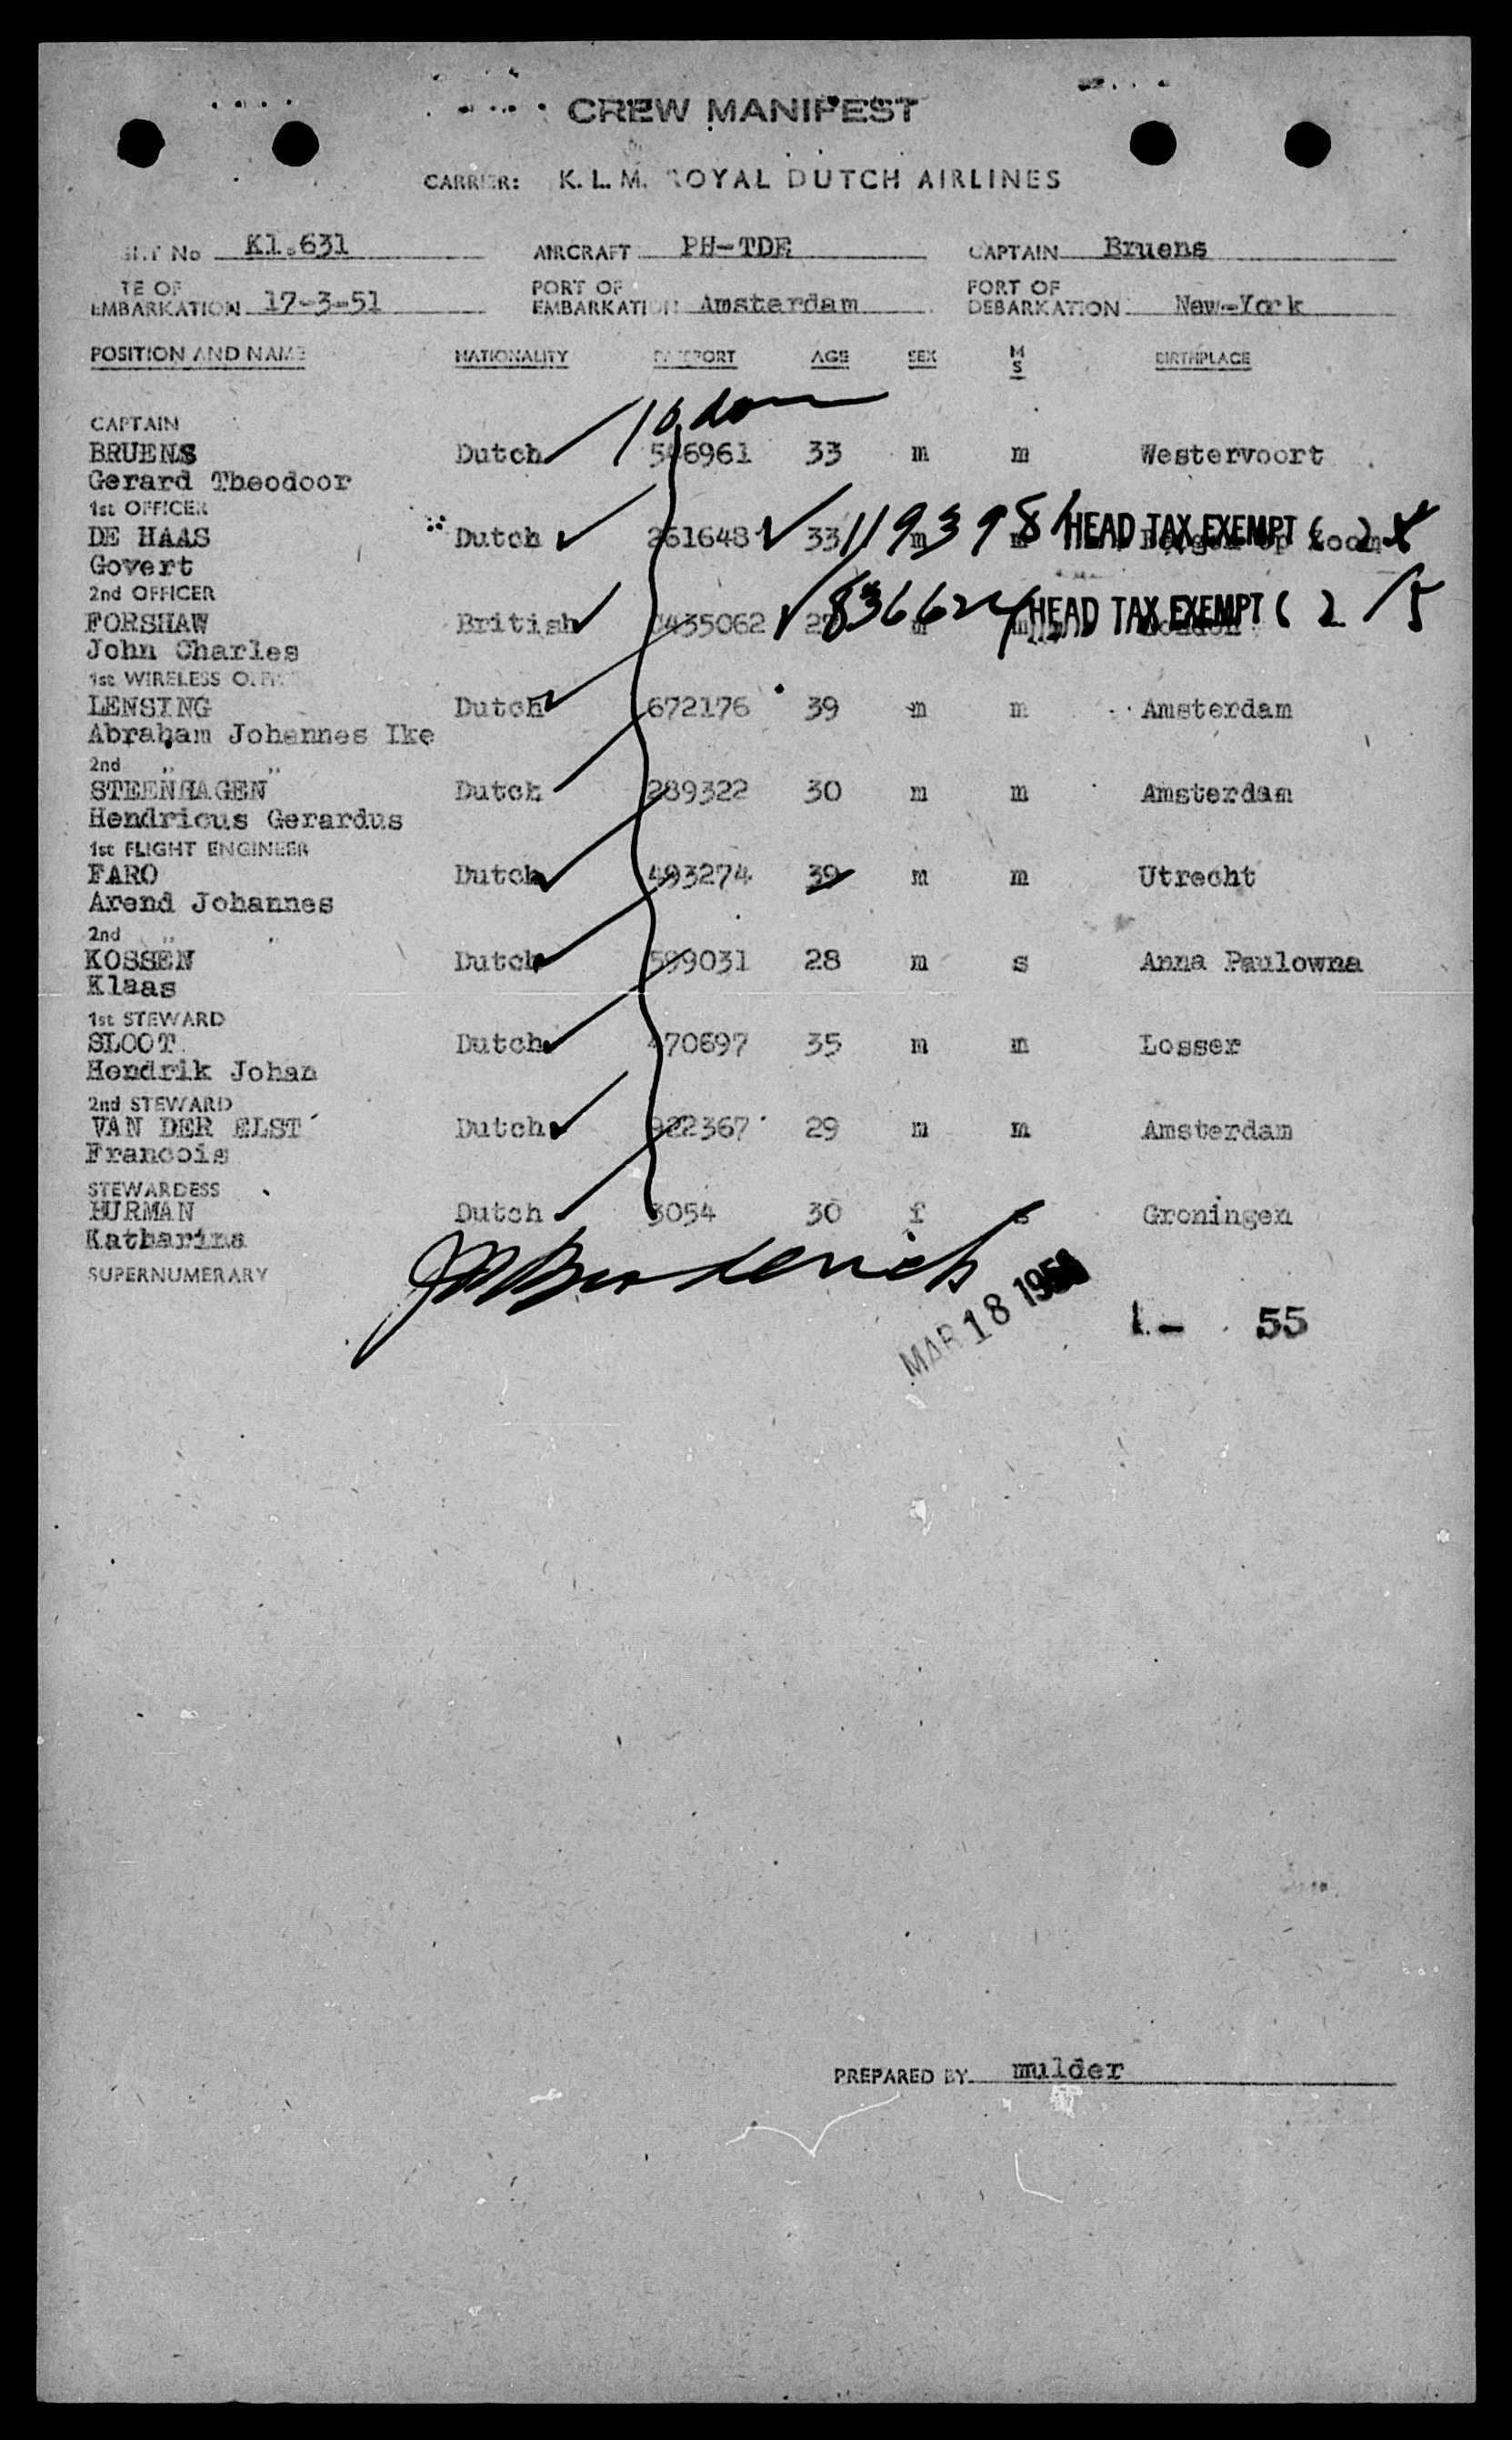 CREW MANIFEST
CARRIER: K. L. M. ROYAL DUTCH AIRLINES
No Kl.631 AIRCRAFT PH-TDE CAPTAIN Bruens
TE OF PORT OF PORT OF
EMBARKATION 17-3-51 EMBARKATION Amsterdam DEBARKATION New-York
POSITION AND NAME NATIONALITY PASSPORT AGE SEX M S BIRTHPLACE
CAPTAIN
BRUENS Dutch 33 m m Westervoort
Gerard Theodoor
1st OFFICER
DE HAAS Dutch 261648 33 1193981 m HEAD TAX EXEMPT ( 2
Govert
2nd OFFICER
FORSHAW British 435062 836624 m HEAD TAX EXEMPT ( 2 /5
John Charles
1st WIRELESS
LENSING Dutch 672176 39 m m Amsterdam
Abraham Johannes Ike
2nd " "
STEENHAGEN Dutch 289322 30 m m Amsterdam
Hendricus Gerardus
1st FLIGHT ENGINEER
FARO Dutch 493274 39 m m Utrecht
Arend Johannes
2nd " "
KOSSEN Dutch 599031 28 m s Anna Paulowna
Klaas
1st STEWARD
SLOOT Dutch 470697 35 m m Losser
Hendrik Johan
2nd STEWARD
VAN DER ELST Dutch 922367 29 m m Amsterdam
Francois
STEWARDESS
BURMAN Dutch 3054 30 f s Groningen
Katharina
SUPERNUMERARY
MAR 18 1951
1.- 55
PREPARED BY mulder